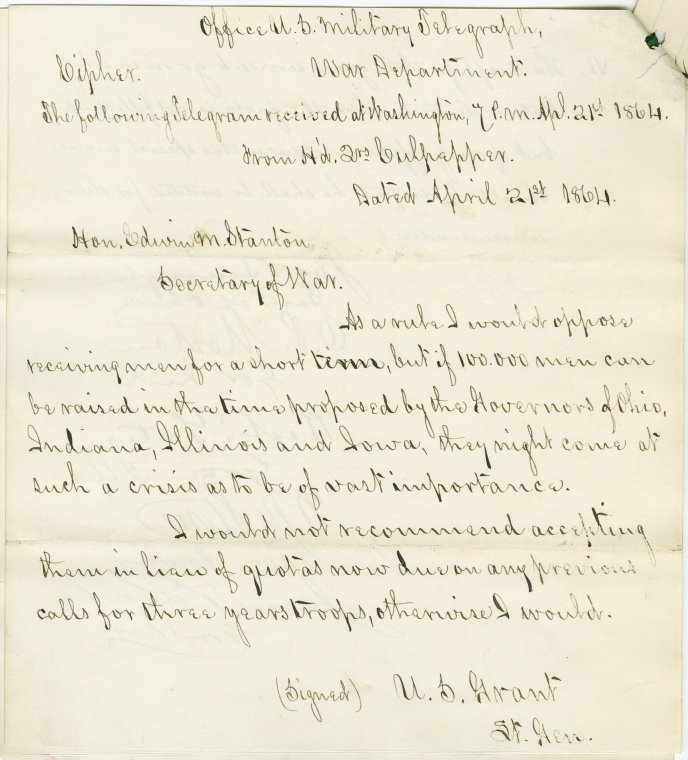 Office U.S. Military Telegraph,
Cipher. War Department.
The following Telegram received at Washington, 7 P.M. Apl. 21st 1864.
From H'd. Qrs Culpepper.
Dated April 21st 1864.
Hon. Edwin M. Stanton
Secretary of War.
As a rule I would oppose
receiving men for a short term, but if 100.000 men can
be raised in the time proposed by the Governors of Ohio,
Indiana, Illinois and Iowa, they might come at
such a crisis as to be of vast importance.
I would not recommend accepting
them in lieu of quotas now due on any previous
calls for three years troops, otherwise I would.
(Signed) U. S. Grant
Lt. Gen.